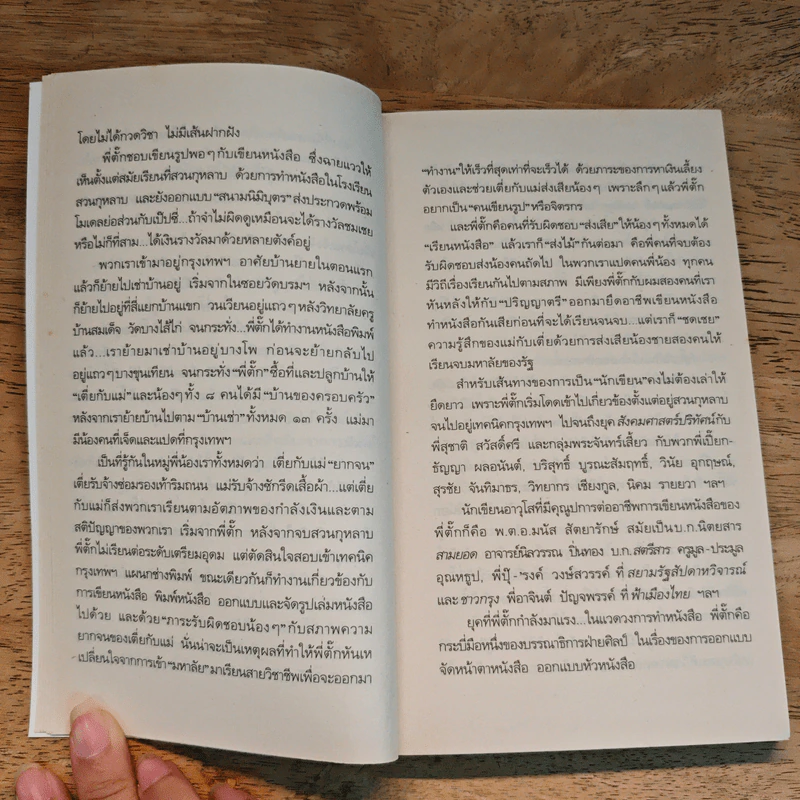 โดยไม่ได้กวดวิชา ไม่มีเส้นฝากฝัง
พี่ตั๊กชอบเขียนรูปพอๆ กับเขียนหนังสือ ซึ่งฉายแววให้
เห็นตั้งแต่สมัยเรียนที่สวนกุหลาบ ด้วยการทำหนังสือในโรงเรียน
สวนกุหลาบ และยังออกแบบ “สนามนิมิบุตร” ส่งประกวดพร้อม
โมเดลย่อส่วนกับเป๊ปซี่...ถ้าจำไม่ผิดดูเหมือนจะได้รางวัลชมเชย
หรือไม่ก็ที่สาม...ได้เงินรางวัลมาด้วยหลายตังค์อยู่
พวกเราเข้ามาอยู่กรุงเทพฯ อาศัยบ้านยายในตอนแรก
แล้วก็ย้ายไปเช่าบ้านอยู่ เริ่มจากในซอยวัดบรมฯ หลังจากนั้น
ก็ย้ายไปอยู่ที่สี่แยกบ้านแขก วนเวียนอยู่แถวๆ หลังวิทยาลัยครู
บ้านสมเด็จ วัดบางไส้ไก่ จนกระทั่ง...พี่ตั๊กได้ทำงานหนังสือพิมพ์
แล้ว...เราย้ายมาเช่าบ้านอยู่บางโพ ก่อนจะย้ายกลับไป
อยู่แถวๆ บางขุนเทียน จนกระทั่ง “พี่ตั๊ก” ซื้อที่และปลูกบ้านให้
“เตี่ยกับแม่” และน้องๆ ทั้ง ๘ คนได้มี “บ้านของครอบครัว”
หลังจากเราย้ายบ้านไปตาม “บ้านเช่า” ทั้งหมด ๑๓ ครั้ง แม่มา
มีน้องคนที่เจ็ดและแปดที่กรุงเทพฯ
เป็นที่รู้กันในหมู่พี่น้องเราทั้งหมดว่า เตี่ยกับแม่ “ยากจน”
เตี่ยรับจ้างซ่อมรองเท้าริมถนน แม่รับจ้างซักรีดเสื้อผ้า...แต่เตี่ย
กับแม่ก็ส่งพวกเราเรียนตามอัตภาพของกำลังเงินและตาม
สติปัญญาของพวกเรา เริ่มจากพี่ตั๊ก หลังจากจบสวนกุหลาบ
พี่ตั๊กไม่เรียนต่อระดับเตรียมอุดม แต่ตัดสินใจสอบเข้าเทคนิค
กรุงเทพฯ แผนกช่างพิมพ์ ขณะเดียวกันก็ทำงานเกี่ยวข้องกับ
การเขียนหนังสือ พิมพ์หนังสือ ออกแบบและจัดรูปเล่มหนังสือ
ไปด้วย และด้วย “ภาระรับผิดชอบน้องๆ” กับสภาพความ
ยากจนของเตี่ยกับแม่ นั่นน่าจะเป็นเหตุผลที่ทำให้พี่ตั๊กหันเห
เปลี่ยนใจจากการเข้า “มหาลัย” มาเรียนสายวิชาชีพเพื่อจะออกมา
“ทำงาน” ให้เร็วที่สุดเท่าที่จะเร็วได้ ด้วยภาระของการหาเงินเลี้ยง
ตัวเองและช่วยเตี่ยกับแม่ส่งเสียน้องๆ เพราะลึกๆ แล้วพี่ตั๊ก
อยากเป็น “คนเขียนรูป” หรือจิตรกร
และพี่ตั๊กคือคนที่รับผิดชอบ “ส่งเสีย” ให้น้องๆ ทั้งหมดได้
“เรียนหนังสือ” แล้วเราก็ “ส่งไม้” กันต่อมา คือพี่คนที่จบต้อง
รับผิดชอบส่งน้องคนถัดไป ในพวกเราแปดคนพี่น้อง ทุกคน
มีวิถีเรื่องเรียนกันไปตามสภาพ มีเพียงพี่ตั๊กกับผมสองคนที่เรา
หันหลังให้กับ “ปริญญาตรี” ออกมายึดอาชีพเขียนหนังสือ
ทำหนังสือกันเสียก่อนที่จะได้เรียนจนจบ...แต่เราก็ “ชดเชย”
ความรู้สึกของแม่กับเตี่ยด้วยการส่งเสียน้องชายสองคนให้
เรียนจบมหาลัยของรัฐ
สำหรับเส้นทางของการเป็น “นักเขียน” คงไม่ต้องเล่าให้
ยืดยาว เพราะพี่ตั๊กเริ่มโดดเข้าไปเกี่ยวข้องตั้งแต่อยู่สวนกุหลาบ
จนไปอยู่เทคนิคกรุงเทพฯ ไปจนถึงยุค สังคมศาสตร์ปริทัศน์ กับ
พี่สุชาติ สวัสดิ์ศรี และกลุ่มพระจันทร์เสี้ยว กับพวกพี่เปี๊ยก-
ธัญญา ผลอนันต์, บริสุทธิ์ บูรณะสัมฤทธิ์, วินัย อุกฤษณ์,
สุรชัย จันทิมาธร, วิทยากร เชียงกูล, นิคม รายยวา ฯลฯ
นักเขียนอาวุโสที่มีคุณูปการต่ออาชีพการเขียนหนังสือของ
พี่ตั๊กก็คือ พ.ต.อ.มนัส สัตยารักษ์ สมัยเป็นบ.ก.นิตยสาร
สามยอด อาจารย์นิลวรรณ ปิ่นทอง บ.ก.สตรีสาร ครูมูล-ประมูล
อุณหธูป, พี่ปุ๊-’รงค์ วงษ์สวรรค์ ที่ สยามรัฐสัปดาหวิจารณ์
และ ชาวกรุง พี่อาจินต์ ปัญจพรรค์ ที่ ฟ้าเมืองไทย ฯลฯ
ยุคที่พี่ตั๊กกำลังมาแรง...ในแวดวงการทำหนังสือ พี่ตั๊กคือ
กระบี่มือหนึ่งของบรรณาธิการฝ่ายศิลป์ ในเรื่องของการออกแบบ
จัดหน้าตาหนังสือ ออกแบบหัวหนังสือ